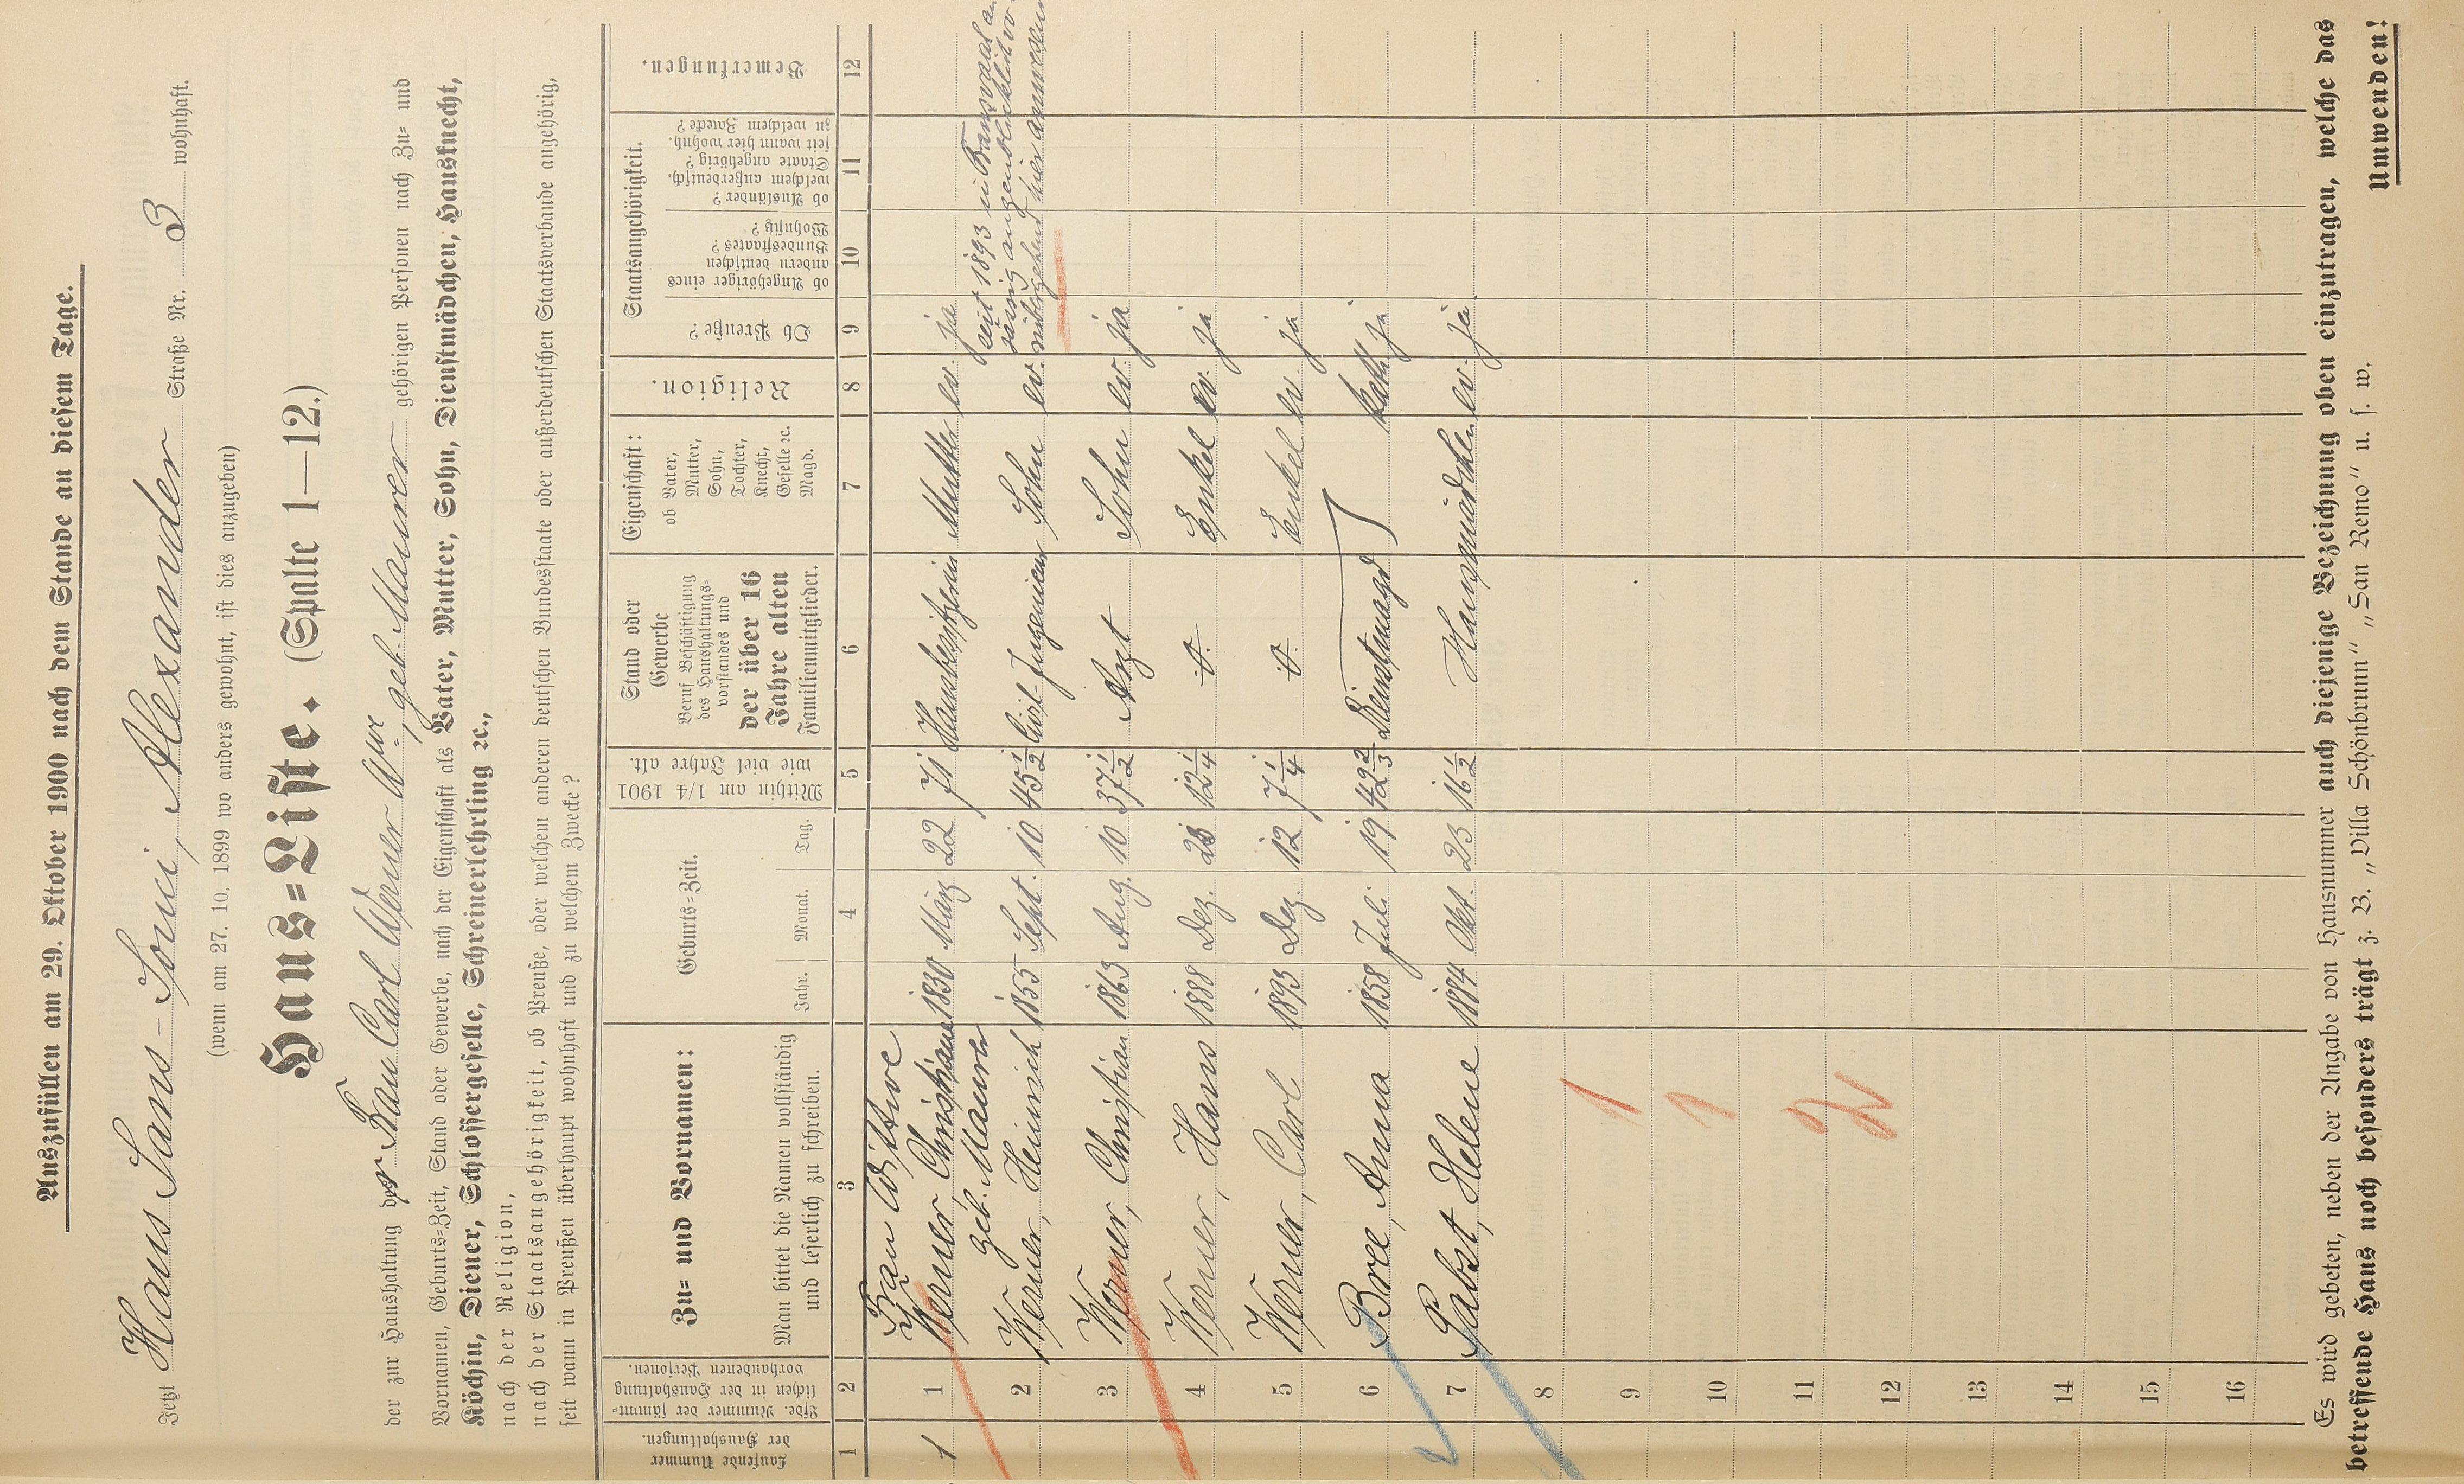 Auszufüllen am 29. Oktober 1900 nach dem Stande an diesem Tage.
Jetzt Haus Sans-Souci, Alexander Straße Nr. 3 wohnhaft.
(wenn am 27. 10. 1899 wo anders gewohnt, ist dies anzugeben)
Haus=Liste. (Spalte 1—12.)
der zur Haushaltung der Frau Carl Werner Wwe, geb. Maurer gehörigen Personen nach Zu= und
Vornamen, Geburts=Zeit, Stand oder Gewerbe, nach der Eigenschaft als Vater, Mutter, Sohn, Dienstmädchen, Hausknecht,
Köchin, Diener, Schlossergeselle, Schreinerlehrling ꝛc.,
nach der Religion,
nach der Staatsangehörigkeit, ob Preuße, oder welchem anderen deutschen Bundesstaate oder außerdeutschen Staatsverbande angehörig,
seit wann in Preußen überhaupt wohnhaft und zu welchem Zwecke?
Laufende Nummer
der Haushaltungen.
Lfde. Nummer der sämmt=
lichen in der Haushaltung
vorhandenen Personen.
Zu= und Vornamen:
Man bittet die Namen vollständig
und leserlich zu schreiben.
Geburts=Zeit.
Jahr. Monat. Tag.
Mithin am 1/4 1901
wie viel Jahre alt.
Stand oder
Gewerbe
Beruf Beschäftigung
des Haushaltungs=
vorstandes und
der über 16
Jahre alten
Familienmitglieder.
Eigenschaft:
ob Vater,
Mutter,
Sohn,
Tochter,
Knecht,
Geselle ꝛc.
Magd.
Religion.
Staatsangehörigkeit.
Ob Preuße?
ob Angehöriger eines
andern deutschen
Bundesstaates?
Wohnsitz?
ob Ausländer?
welchem außerdeutsch.
Staate angehörig?
seit wann hier wohnh.
zu welchem Zwecke?
Bemerkungen.
1 2 3 4 5 6 7 8 9 10 11 12
Frau Wittwe
1 1 Werner, Christiane 1830 März 22 71 Hausbesitzerin Mutter ev. ja
geb. Maurer
seit 1893 in Transvaal an
sässig augenblicklich vor
2 Werner, Heinrich 1855 Sept. 10 45 1/2 Civil-Ingenieur Sohn ev. übergehend hier anwesend
3 Werner, Christian 1863 Aug. 10 37 1/2 Arzt Sohn ev. ja
4 Werner, Hans 1888 Dez. 12 1/4 Enkel ev. ja
5 Werner, Carl 1893 Dez. 12 7 1/4 Enkel ev. ja
6 Bree, Anna 1858 Juli 19 42 2/3 Dienstmagd kath. ja
7 Pabst, Helene 1884 Okt. 23 16 1/2 Hausmädchen ev. ja
8
9 1
10 1
11
12
13
14
15
16
Es wird gebeten, neben der Angabe von Hausnummer auch diejenige Bezeichnung oben einzutragen, welche das
betreffende Haus noch besonders trägt z. B. „Villa Schönbrunn“ „San Remo“ u. s. w.
Umwenden!